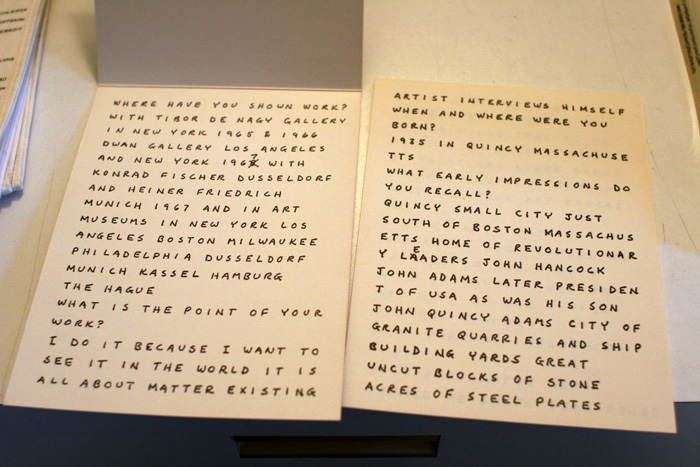 WHERE HAVE YOU SHOWN WORK?
WITH TIBOR DE NAGY GALLERY
IN NEW YORK 1965 & 1966
DWAN GALLERY LOS ANGELES
AND NEW YORK 1967 WITH
KONRAD FISCHER DUSSELDORF
AND HEINER FRIEDRICH
MUNICH 1967 AND IN ART
MUSEUMS IN NEW YORK LOS
ANGELES BOSTON MILWAUKEE
PHILADELPHIA DUSSELDORF
MUNICH KASSEL HAMBURG
THE HAGUE
WHAT IS THE POINT OF YOUR
WORK?
I DO IT BECAUSE I WANT TO
SEE IT IN THE WORLD IT IS
ALL ABOUT MATTER EXISTING
ARTIST INTERVIEWS HIMSELF
WHEN AND WHERE WERE YOU
BORN?
1935 IN QUINCY MASSACHUSE
TTS
WHAT EARLY IMPRESSIONS DO
YOU RECALL?
QUINCY SMALL CITY JUST
SOUTH OF BOSTON MASSACHUS
ETTS HOME OF REVOLUTIONAR
Y LEADERS JOHN HANCOCK
JOHN ADAMS LATER PRESIDEN
T OF USA AS WAS HIS SON
JOHN QUINCY ADAMS CITY OF
GRANITE QUARRIES AND SHIP
BUILDING YARDS GREAT
UNCUT BLOCKS OF STONE
ACRES OF STEEL PLATES